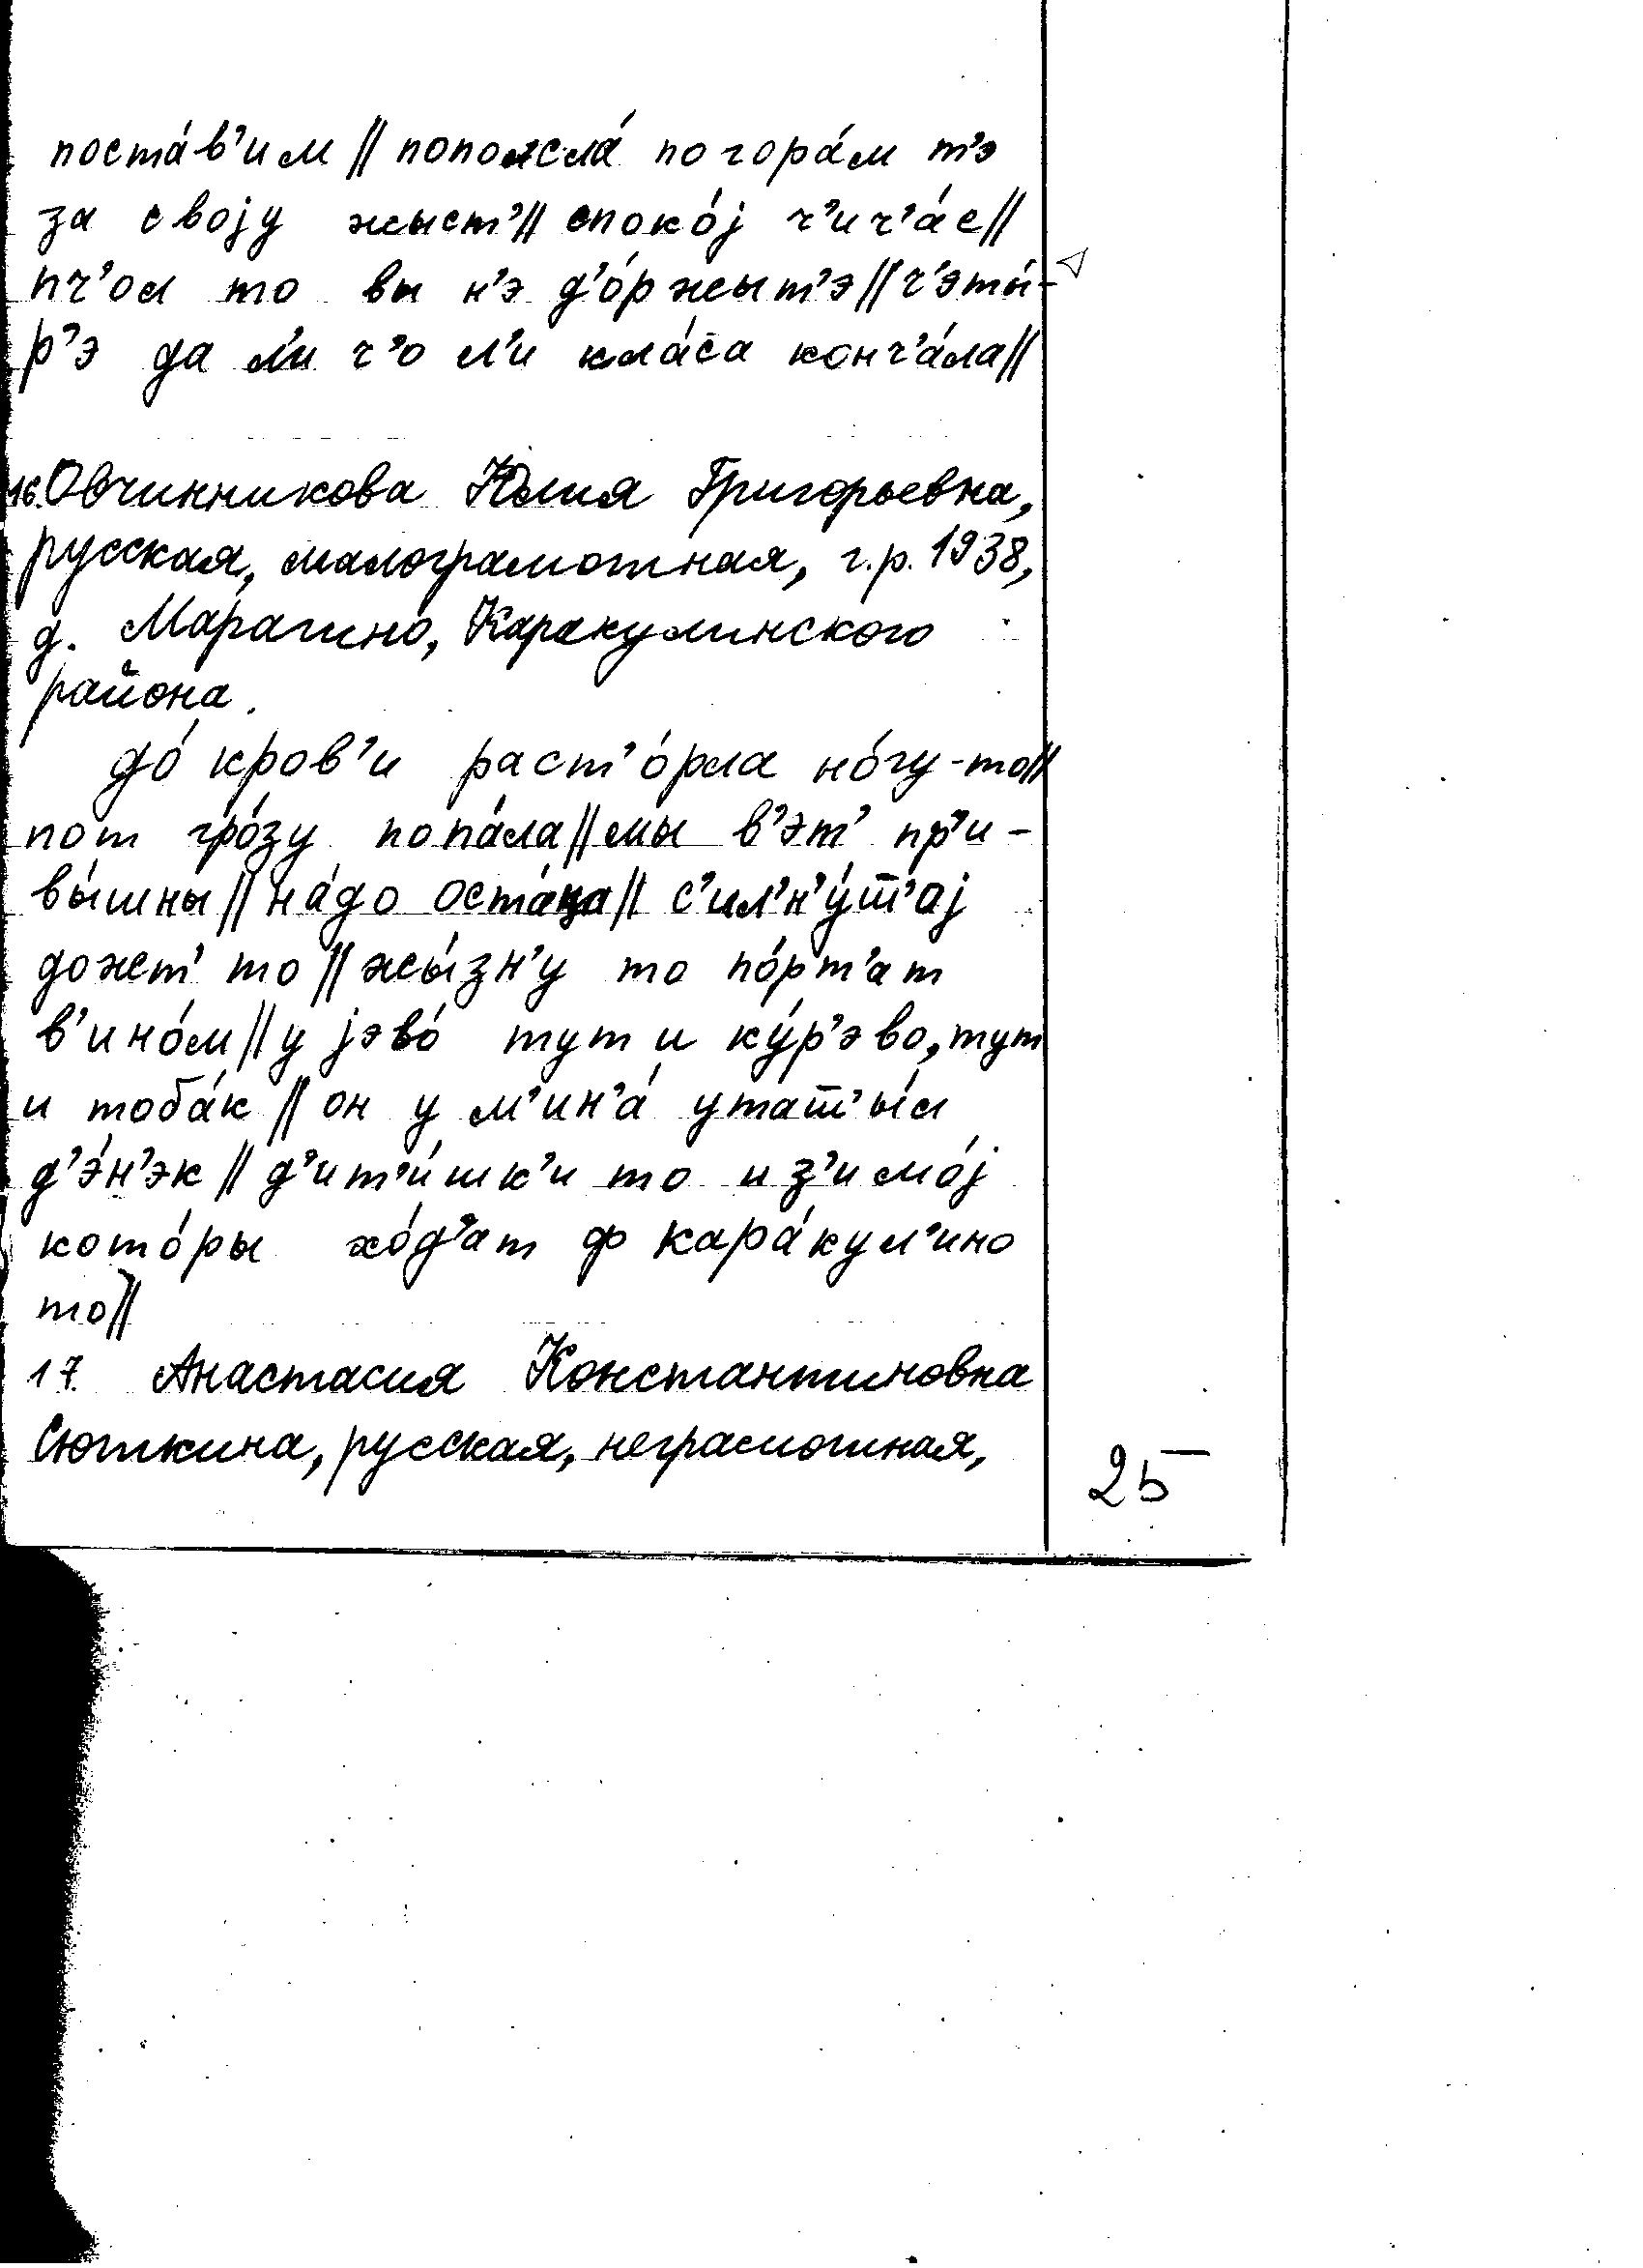 поста́в'им || попожсла́ по гора́м т'э
за своjу жыст' || споко́j ч'ич'а́с ||
пч'ол то вы н'э д'о́ржыт'э || ч'эты́-
р'э да л'и ч'о л'и кла́са конч'а́ла ||
16. Овчинникова Юлия Григорьевна,
русская, малограмотная, г.р. 1938,
д. Марагино, Каракулинского
района.
до́ кров'и раст'о́рла но́гу-то ||
пот гро́зу попа́ла || мы в'эт' пр'и-
вы́шны || на́до оста́ца || с'ил'н'у́т̅'аj
дожт' то || жы́зн'у то по́рт'ат
в'ино́м || у jэво́ тут и ку́р'эво, тут
и тоба́к || он у м'ин'а́ утат̅'ы́л
д'э́н'эк || д'ит'и́шк'и то и з'имо́j
кото́ры хо́д'ат ф кара́кул'ино
то ||
17. Анастасия Константиновна
Сюткина, русская, неграмотная,
25